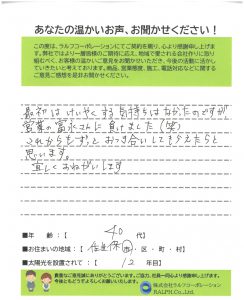 あなたの温かいお声、お聞かせください!
この度は、ラルフコーポレーションにてご契約を賜り、心より感謝申し上げま
す。弊社ではより一層皆様のご期待に応え、地域で愛される会社作りに取り
組むべく、お客様の温かいご意見をお聞かせいただき、今後の活動に活かし
ていきたいと考えております。商品、営業態度、施工、電話対応などに関する
ご意見ご感想を是非お聞かせください。
最初はけいやくする気持ちはなかったのですが
営業の富永さんに負けました(笑)
これからもずっとお付き合いしてもらえたらと
思います。
宜しくおねがいします
■年 齢:( 40 代)
■お住まいの地域:( 佐世保 市・区・町・村)
■太陽光を設置されて:( 12 年目)
貴重なご意見誠にありがとうございます。ご協力、社員一同心より感謝申し上げます。
今後ともどうぞよろしくお願いいたします。
株式会社ラルフコーポレーション
RALPH Co.,Ltd